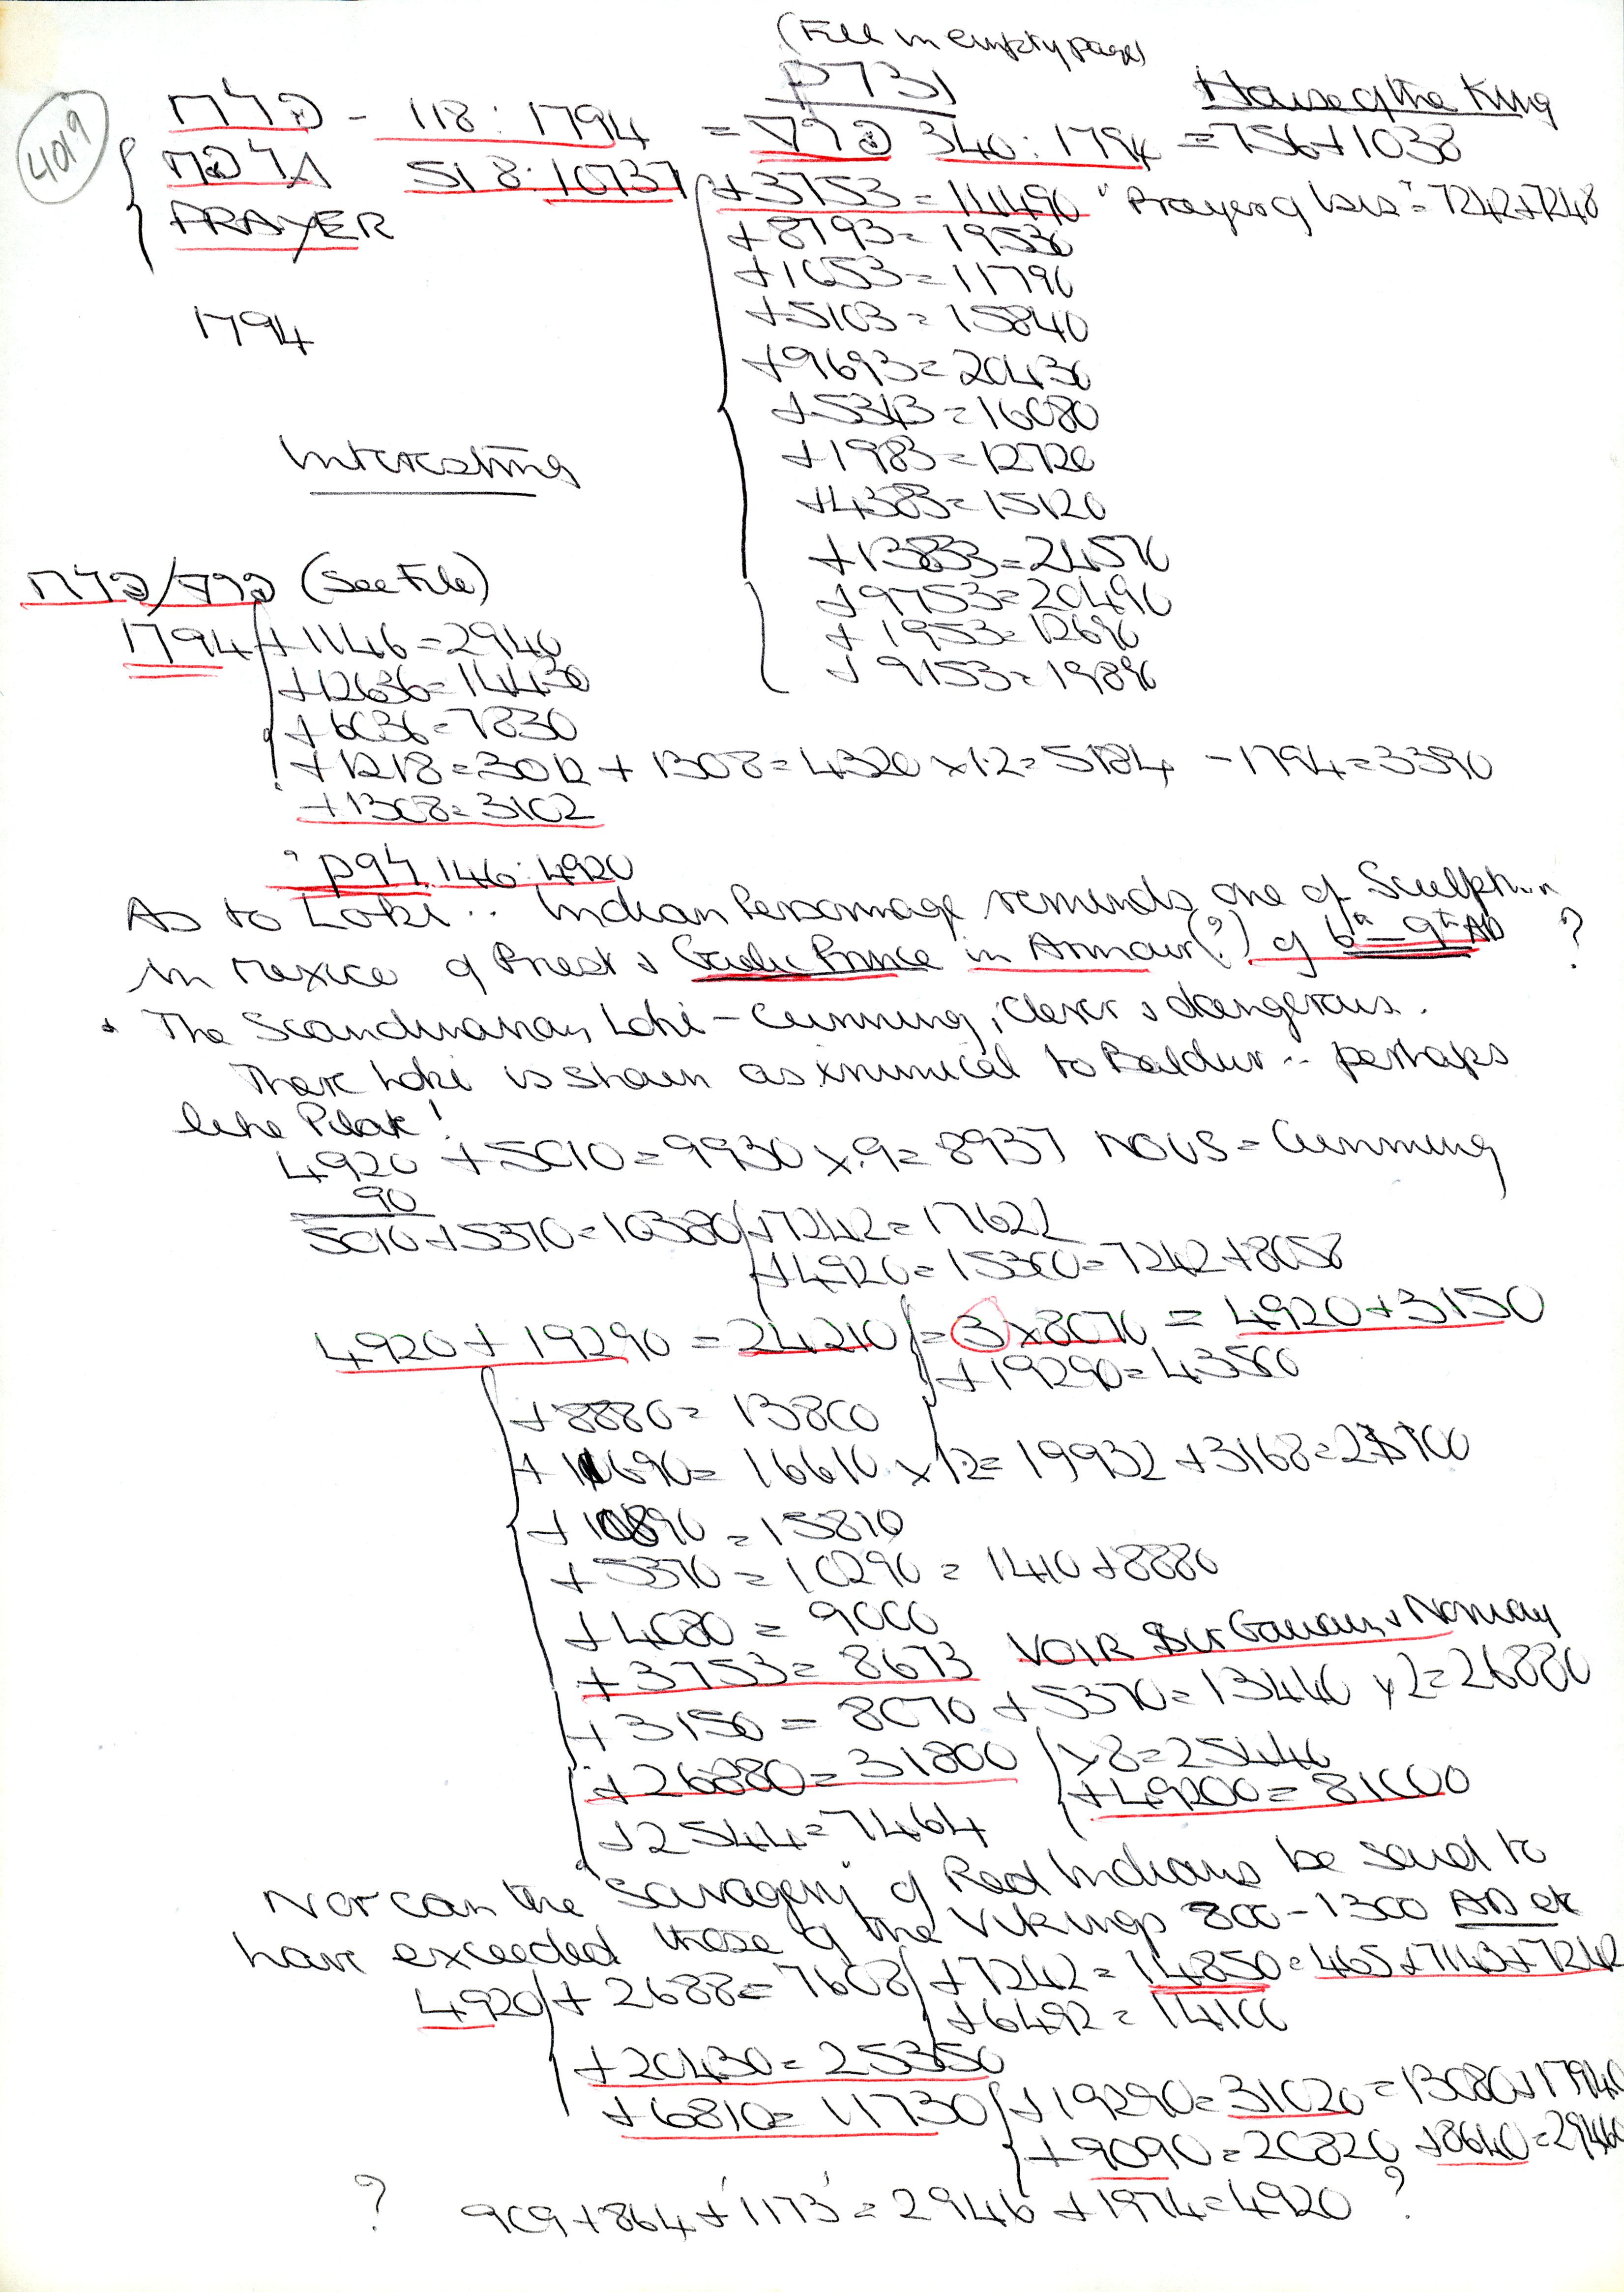 (Fill in empty page)
p731
4019
פלח - 118 : 1794 = 340 : 1794 = 756 + 1038
House of the King
518 : 10737 + 3753 = 14490 "Prayer of Isis" = 7242 + 7248
PRAYER
+ 8793 = 19530
+ 1053 = 11790
+ 5103 = 15840
+ 9693 = 20430
+ 5343 = 16080
+ 1983 = 12720
+ 4383 = 15120
+ 13833 = 24570
+ 9753 = 20490
+ 1953 = 12690
+ 9153 = 19890
1794
Interesting
(See File)
1794 + 1146 = 2940
+ 12636 = 14430
+ 6036 = 7830
+ 1218 = 3012 + 1308 = 4320 x 1.2 = 5184 - 1794 = 3390
+ 1308 = 3102
p94. 146 : 4920
As to Loki .. Indian Personnage reminds one of Sculpture
in Mexico of Priest & Gaelic Prince in Armour (?) of 6th - 9th AD ?
The Scandinavian Loki - Cunning, clever & dangerous.
There Loki is shown as inimical to Baldur .. perhaps
like Pilate!
4920 + 5010 = 9930 x .9 = 8937 NOUS = Cunning
90
5010 + 5370 = 10380 + 7242 = 17622
+ 4920 = 15300 = 7242 + 8058
4920 + 19290 = 24210 = 3 x 8070 = 4920 + 3150
+ 19290 = 43500
+ 8880 = 13800
+ 11690 = 16610 x 1.2 = 19932 + 3168 = 23100
+ 10890 = 15810
+ 5370 = 10290 = 1410 + 8880
+ 4080 = 9000
+ 3753 = 8673 VOIR Sir Gawain & Norway
+ 3150 = 8070 + 5370 = 13440 x 2 = 26880
+ 26880 = 31800 x 8 = 25440
+ 49200 = 81000
+ 2544 = 7464
Nor can the savagery of Red Indians be said to
have exceeded those of the Vikings 800 - 1300 AD etc
4920 + 2688 = 7608 + 7242 = 14850 = 465 + 7143 + 7242
+ 6492 = 14100
+ 20430 = 25350
+ 6810 = 11730 + 19290 = 31020 = 13080 + 17940
+ 9090 = 20820 + 8640 = 29460
? 909 + 864 + 1173 = 2946 + 1974 = 4920 ?